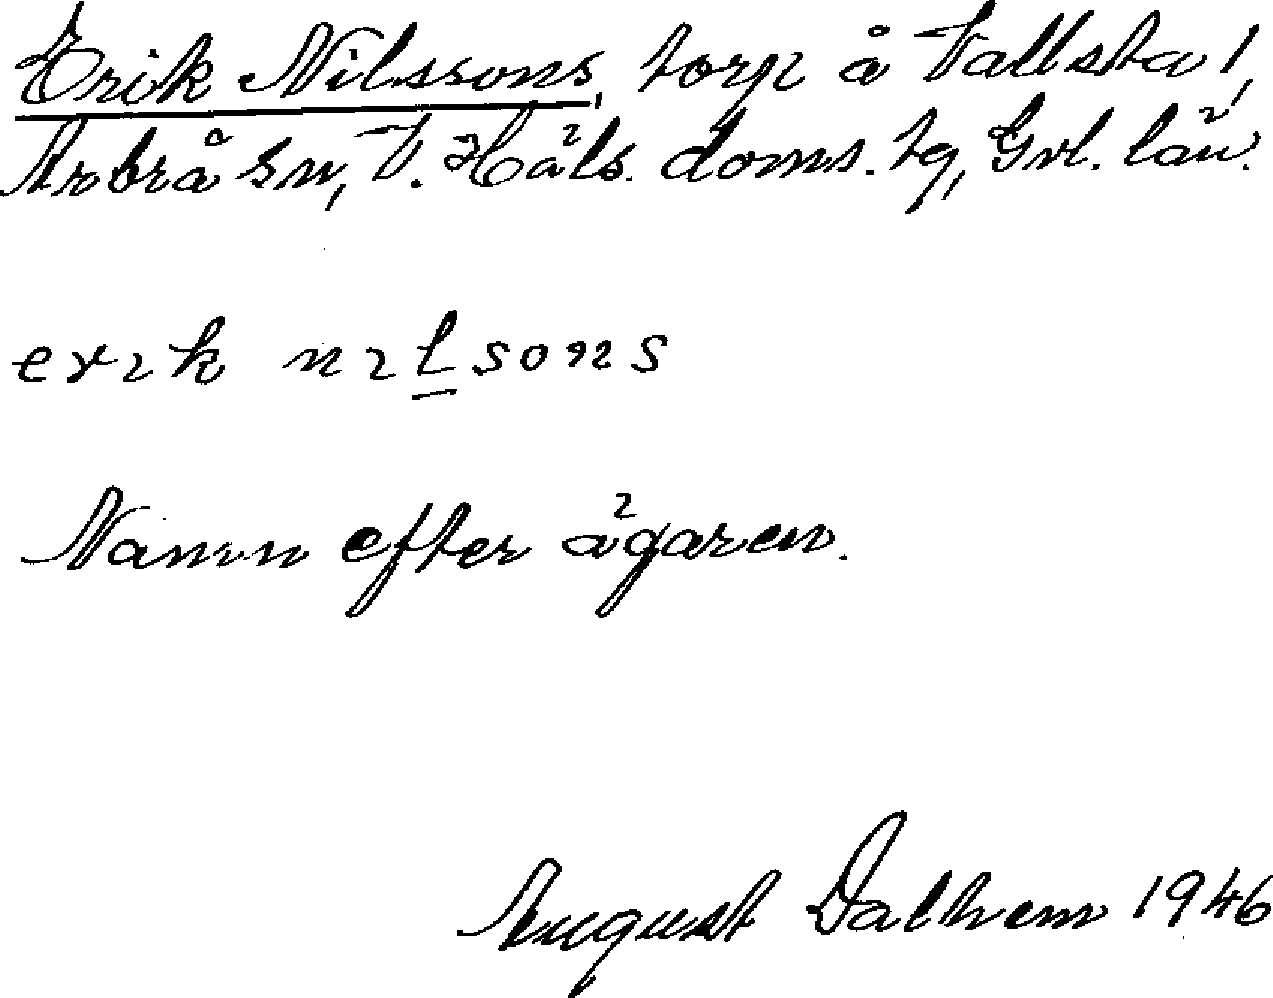 Erik Nilssons, torp å Vallsta 1,
Arbrå sn, V. Häls. doms. tg, Gvl. län.
erık nılsons
Namn efter ägaren.
August Dalhem 1946